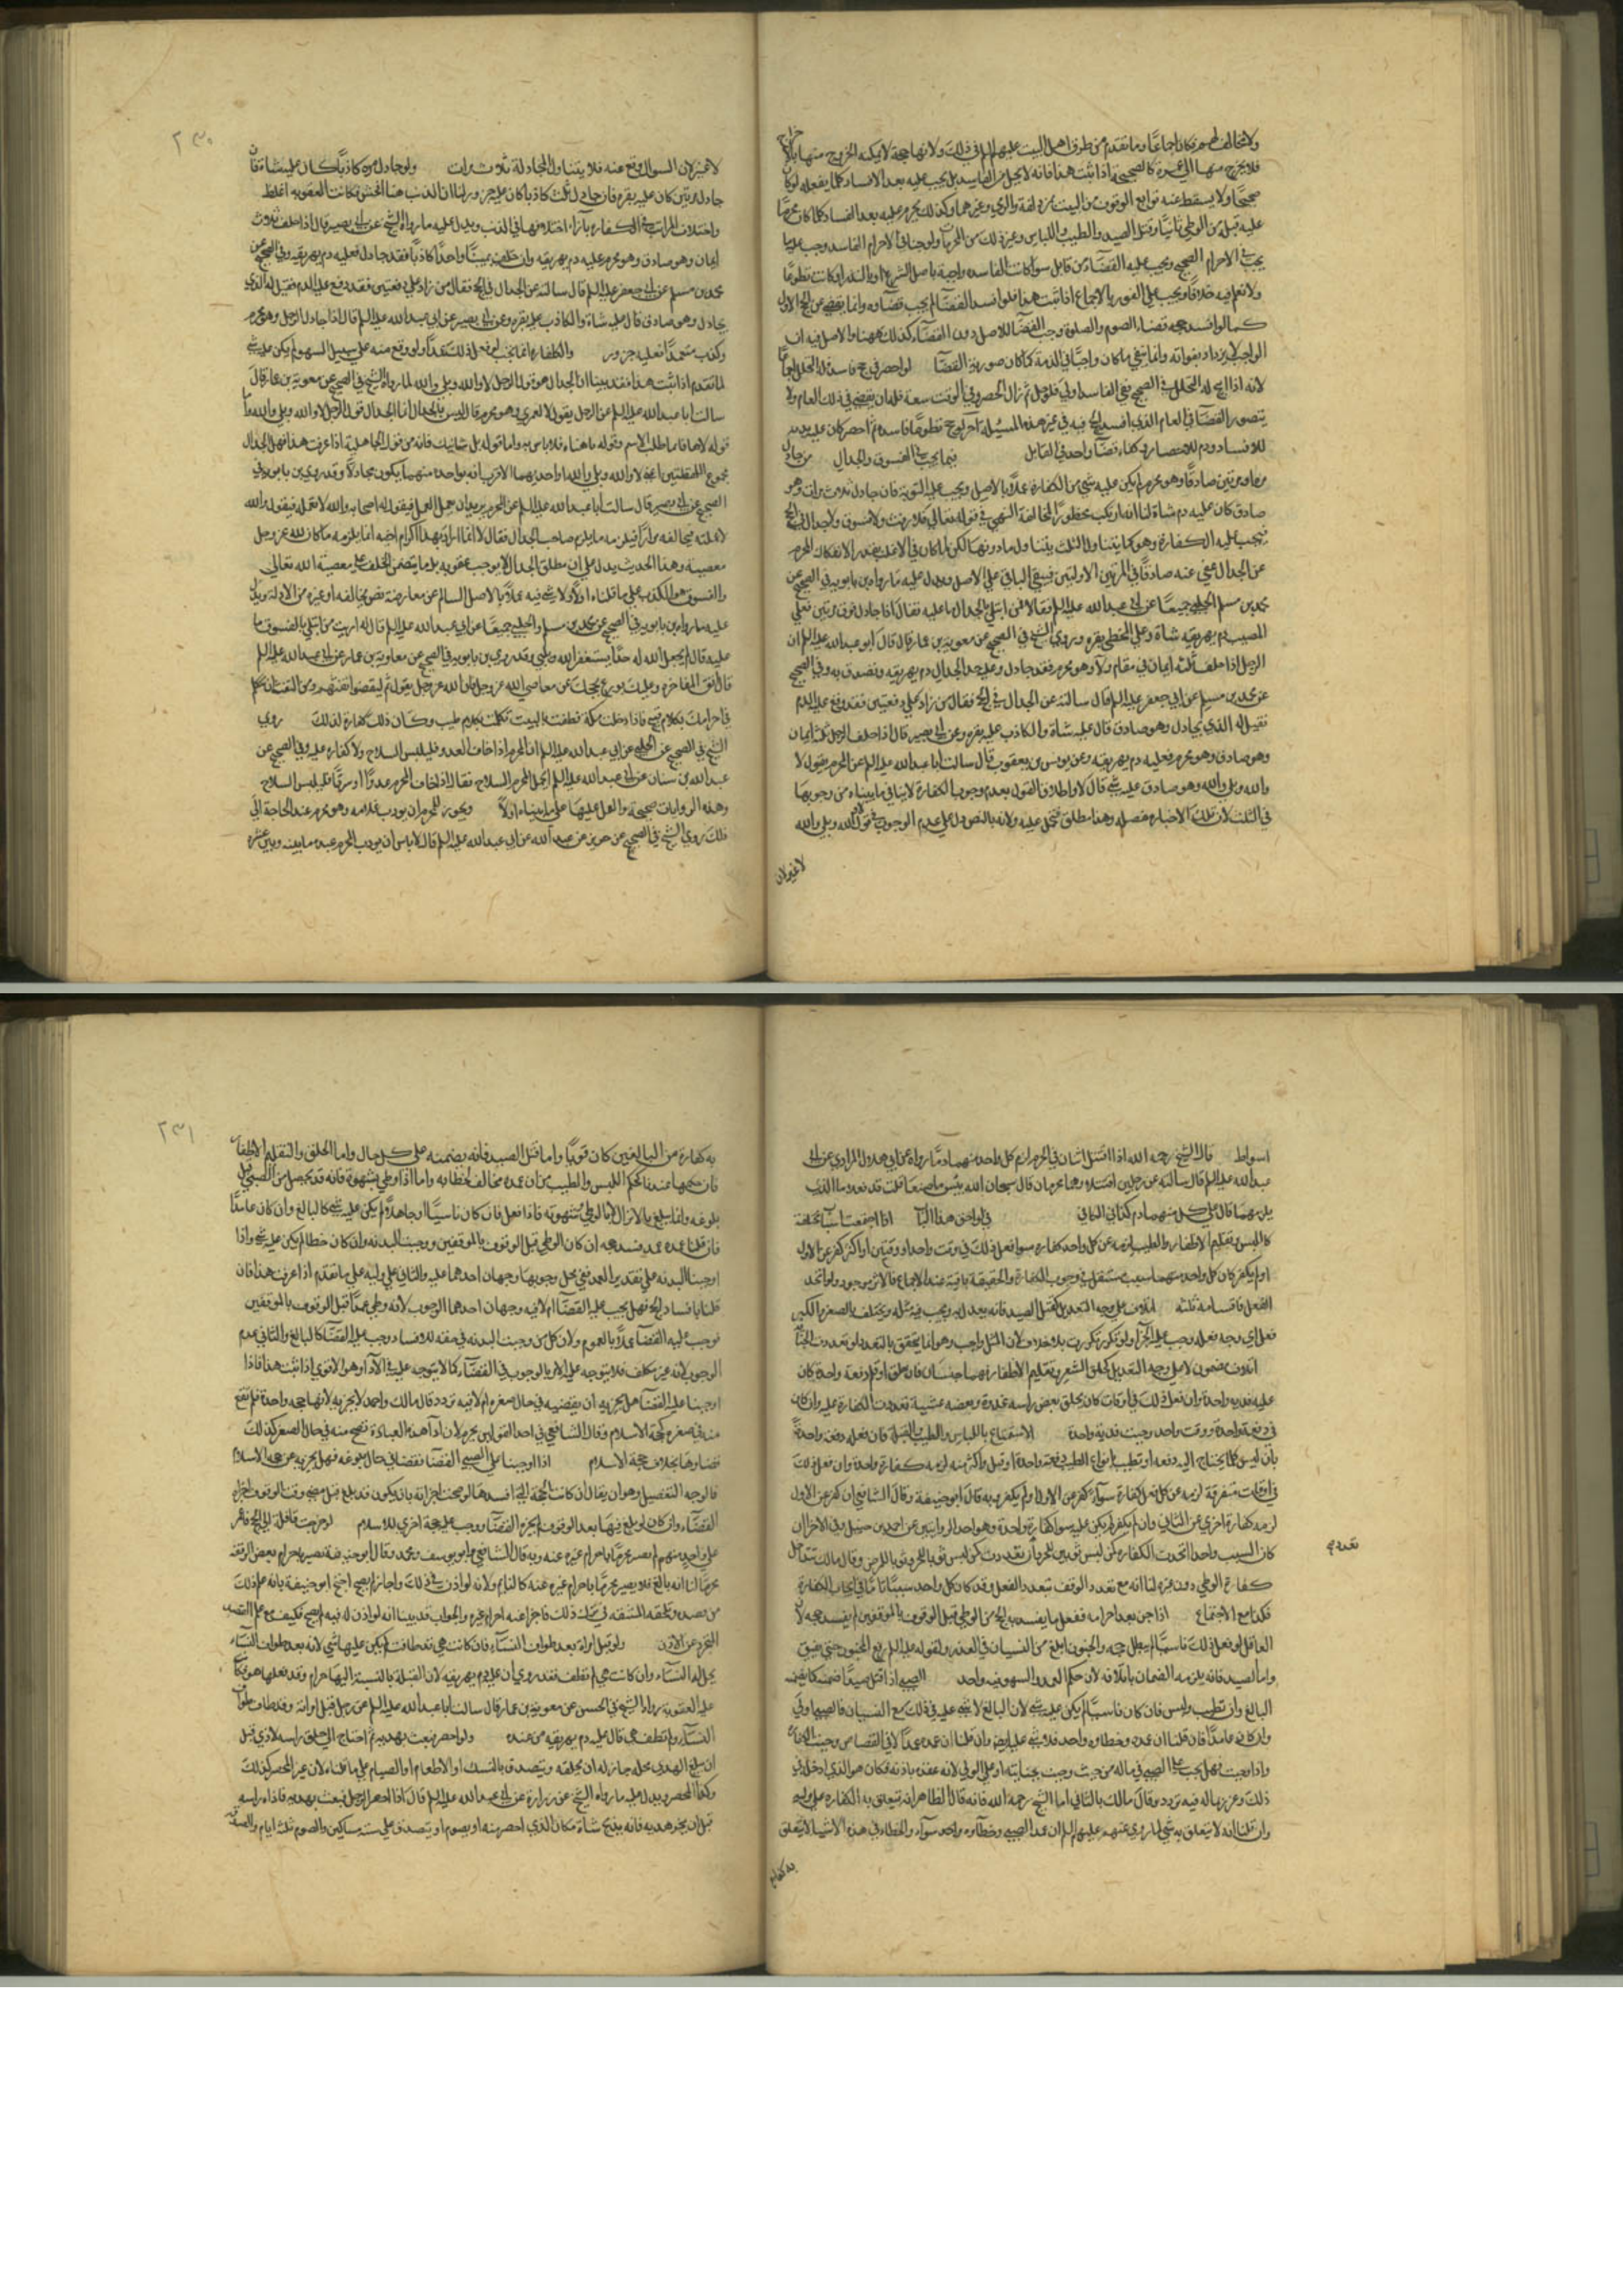 ولا مخالف لهم فكان اجماعا وما تقدم من طرق اهل البيت عليهم السلم في ذلك ولانها حجة لا يمكنه الخروج منها بالاخراج
فلا يخرج منها الى عمرة كالصحيحة اذا ثبت هذا فانه لا يحل من الفاسد بل يجب عليه بعد الافساد كلما يفعله لو كان
صحيحا ولا يسقط عنه توابع الوقوف من المبيت بمزدلفة والرمي وغيرهما وكذلك يحرم عليه بعد الفساد كلما كان محرما
عليه قبله من الوطي ثانيا وقتل الصيد والطيب واللباس وغير ذلك من المحرمات ولو جنا في الاحرام الفاسد وجب عليه ما
يجب في الاحرام الصحيح ويجب عليه القضاء من قابل سوا كانت الفاسده واجبة باصل الشرع او بالنذر او كانت تطوعا
ولا نعلم فيه خلافا ويجب على الفور بالاجماع اذا ثبت هذا فلو افسد القضا لم يجب قضاوه وانما يقضي عن الحج الاول
كما لو افسد قضاء الصوم والصلوة وجب القضا للاصل دون القضاء كذلك ههنا والاصل فيه ان
الواجب لا يزداد بفواته وانما يبقى ما كان واجبا في الذمة كما كان لو احصر في حج فاسد فله التحلل اجماعا
لانه اذا ابيح له التحلل في الصحيح ففي الفاسد اولى فلو حل ثم زال الحصر وفي الوقت سعة فله ان يقضي في ذلك العام ولا
يتصور القضا في العام الذي افسد الحج فيه في غير هذه المسئله ولو حج تطوعا فاسدا ثم احصر كان عليه بدنه
للافساد ودم للاحصار وكفاه قضاء واحد في القابل فيما يجب في الفسوق والجدال من جادل
مره او مرتين صادقا وهو محرم لم يكن عليه شي من الكفارة عملا بالاصل ويجب عليه التوبة فان جادل ثلاث مرات وهو
صادق كان عليه دم شاة لنا انه ارتكب محظورا لمخالفة النهي في قوله تعالى فلا رفث ولا فسوق ولا جدال في الحج
فيجب عليه الكفارة وهو كما يتناول الثلث يتناول ما دونها لكن لما كان في الاغلب يتعذر الانفكاك المحرم
عن الجدال عفي عنه صادقا في المرتين الاولتين فيبقى الباقي على الاصل ويدل عليه ما رواه بن بابويه في الصحيح عن
محمد بن مسلم والحلبي جميعا عن ابي عبد الله عليه السلم فقالا فمن ابتلي بالجدال ما عليه فقال اذا جادل فوق مرتين فعلى
المصيب دم يهريقه شاة وعلى المخطي بقره وروى الشيخ في الصحيح عن معوية بن عمار قال قال ابو عبد الله عليه السلم ان
الرجل اذا حلف ثلثه ايمان في مقام ولاء وهو محرم فقد جادل وعليه حد الجدال دم يهريقه وتصدق به وفي الصحيح
عن محمد بن مسلم عن ابي جعفر عليه السلم قال سالته عن الجدال في الحج فقال من زاد على مرتين فقد وقع عليه الدم
فقيل له الذي يجادل وهو صادق قال عليه شاة والكاذب عليه بقره وعن ابي بصير قال اذا حلف الرجل ثلثه ايمان
وهو صادق وهو محرم فعليه دم يهريقه وعن يونس بن يعقوب قال سالت ابا عبد الله عليه السلم عن المحرم يقول لا
والله وبلى والله وهو صادق عليه شي قال لا واطلاق القول بعدم وجوب الكفارة لا ينافي ما بيناه من وجوبها
في الثلث لان تلك الاخبار مفصله وهذا مطلق فتحمل عليه ولانه بالنص دل على عدم الوجوب في قول لا والله وبلى والله
لا غير لان
٢٣٠
لا غير لان السوال وقع عنه فلا يتناول المجادلة ثلاث مرات ولو جادل مره كاذبا كان عليه شاة فان
جادل مرتين كان عليه بقره فان جادل ثلث كاذبا كان عليه جزور لنا ان الذنب هنا افحش فكانت العقوبه اغلظ
واختلاف المراتب في الكفاره بآزاء اختلافها في الذنب ويدل عليه ما رواه الشيخ عن ابي بصير قال اذا حلف ثلاث
ايمان وهو صادق وهو محرم عليه دم يهريقه وان حلف يمينا واحدا كاذبا فقد جادل فعليه دم يهريقه وفي الصحيح عن
محمد بن مسلم عن ابي جعفر عليه السلم قال سالته عن الجدال في الحج فقال من زاد على مرتين فقد وقع عليه الدم فقيل له الذي
يجادل وهو صادق قال عليه شاة والكاذب عليه بقره وعن ابي بصير عن ابي عبد الله عليه السلم قال اذا جادل الرجل وهو محرم
وكذب متعمدا فعليه جزور والكفاره انما تجب لو فعل ذلك عمدا ولو وقع منه على سبيل السهو لم يكن عليه شي
لما تقدم اذا ثبت هذا فقد بينا ان الجدال هو قول الرجل لا والله وبلى والله لما رواه الشيخ في الصحيح عن معوية بن عمار قال
سالت ابا عبد الله عليه السلم عن الرجل يقول لا لعمري وهو محرم قال ليس بالجدال انما الجدال قول الرجل لا والله وبلى والله واما
قوله لاها فانما طلب الاسم وقوله يا هناه فلا باس به واما قوله لا بل شانيك فانه من قول الجاهلية اذا عرفت هذا فهل الجدال
مجموع اللفظتين اعني لا والله وبلى والله او احديهما الاقرب انه بواحده منهما يكون مجادلا وقد روى بن بابويه في
الصحيح عن ابي بصير قال سالت ابا عبد الله عليه السلم عن المحرم يريد ان يعمل العمل فيقول له اصحابه والله لا تعمله فيقول والله
لاعملنه فيحالفه مرارا فيلزمه ما يلزم صاحب الجدال فقال لا انما اراد بهذا اكرام اخيه انما يلزمه ما كان لله عز وجل
معصية وهذا الحديث يدل على ان مطلق الجدال لا يوجب عقوبه بل ما يتضمن الحلف على معصية الله تعالى
والفسوق هو الكذب على ما قلناه اولا ولا شي فيه عملا بالاصل السالم عن معارضة نص يخالفه او غيره من الادلة ويدل
عليه ما رواه بن بابويه في الصحيح عن محمد بن مسلم والحلبي جميعا عن ابي عبد الله عليه السلم قال له ارايت من ابتلي بالفسوق ما
عليه قال لم يجعل الله له حدا يستغفر الله ويلبي وقد روى بن بابويه في الصحيح عن معاوية بن عمار عن ابي عبد الله عليه السلم
قال اتق المفاخره وعليك بورع يحجزك عن معاصي الله عز وجل فان الله عز وجل يقول ثم ليقضوا تفثهم ومن التفث ان تتكلم
في احرامك بكلام قبيح فاذا دخلت مكة فطفت بالبيت تكلمت بكلام طيب وكان ذلك كفارة لذلك روى
الشيخ في الصحيح عن الحلبي عن ابي عبد الله عليه السلم ان المحرم اذا خاف العدو فلبس السلاح ولا كفاره عليه وفي الصحيح عن
عبد الله بن سنان عن ابي عبد الله عليه السلم ايحمل المحرم السلاح فقال اذا خاف المحرم عدوا او سرقا فليلبس السلاح
وهذه الروايات صحيحة والعمل عليها على ما بيناه اولا ويجوز للمحرم ان يودب غلامه وهو محرم عند الحاجة الى
ذلك روى الشيخ في الصحيح عن حريز عن ابي عبد الله عليه السلم قال لا باس ان يودب المحرم عبده ما بينه وبين عشره
اسواط قال الشيخ رحمه الله اذا اقتتل اثنان في الحرم لزم كل واحد منهما دم لما رواه عن ابي هلال الرازي عن ابي
عبد الله عليه السلم قال سالته عن رجلين اقتتلا وهما محرمان قال سبحان الله بئس ما صنعا قلت قد فعلا ما الذي
يلزمهما قال على كل منهما دم في لواحق هذا الباب اذا اجتمعت اسباب مختلفة
كاللبس وتقليم الاظفار والطيب لزمه عن كل واحد كفاره سوا فعل ذلك في وقت واحد او وقتين او اكثر كفر عن الاول
او لم يكفر لان كل واحد منهما سبب مستقل في وجوب الكفارة والحقيقة باقية عند الاجتماع فالاثر موجود ولو اتحد
الفعل فاقسامه ثلثه اتلاف على وجه التعديل كقتل الصيد فانه يعدل به ويجب فيه مثله ويختلف بالصغر والكبر
فعلى اي وجه فعله وجب عليه الجزآ ولو تكرر تكررت بلا خلاف لان المثل واجب وهو انما يتحقق بالتعدد لو تعددت الجناية
اتلاف مضمون لا على وجه التعديل كحلق الشعر وتقليم الاظفار فهما جنسان فان حلق او قلم دفعة واحدة كان
عليه فديه واحدة وان فعل ذلك في اوقات كان يحلق بعض راسه غدوة وبعضه عشية تعددت الكفارة عليه وان كان
في دفعة واحدة ووقت واحد وجبت فدية واحدة الاستمتاع باللباس والطيب والقبلة فان فعله دفعة واحدة
بان لبس كلما يحتاج اليه دفعه او تطيب بانواع الطيب دفعة واحدة او قبل واكثر منه لزمه كفارة واحدة وان فعل ذلك
في اوقات متفرقة لزمه عن كل فعل كفارة سوآء كفر عن الاول او لم يكفر وبه قال ابو حنيفة وقال الشافعي ان كفر عن الاول
لزمه كفارة اخرى عن الثاني وان لم يكفر لم يكن عليه سوا كفارة واحدة وهو احد الروايتين عن احمد بن حنبل وفي الاخرى ان
كان السبب واحدا اتحدت الكفارة كمن لبس ثوبين للحر وان تعددت كمن لبس ثوبا للحر وثوبا للمرض وقال مالك تتداخل
تعدد
كفارة الوطي دون غيره لنا انه مع تعدد الوقت تتعدد الفعل وقد كان كل واحد سببا تاما في ايجاب الكفارة
فكذا مع الاجتماع اذا جن بعد احرامه ففعل ما يفسد به الحج من الوطي قبل الوقوف بالموقفين لم يفسد حجه لان
العاقل لو فعل ذلك ناسيا لم يبطل حجه والجنون ابلغ من النسيان في العذر ولقوله عليه السلم رفع عن المجنون حتى يفيق
واما الصيد فانه يلزمه الضمان باتلافه لان حكم العمد والسهو فيه واحد الصبي اذا قتل صيدا ضمنه كما يضمنه
البالغ وان تطيب ولبس فان كان ناسيا لم يكن عليه شي لان البالغ لا شي عليه في ذلك مع النسيان فالصبي اولى
وان كان عامدا فان قلنا ان عمده وخطاوه واحد فلا شي عليه ايضا وان قلنا ان عمده عمدا لا في القصاص وجبت الكفارة
واذا وجبت فهل يجب على الصبي في ماله من حيث وجبت بجنايته او على الولي لانه عقده باذنه فكان هو الذي ادخله في
ذلك وغرر بماله فيه تردد وقال مالك بالثاني اما الشيخ رحمه الله فانه قال الظاهر انه تتعلق به الكفاره على وليه
وان قلنا انه لا يتعلق به شي لما روي عنهم عليهم السلم ان عمد الصبي وخطاؤه واحد سوآء والخطاء في هذه الاشيا لا يتعلق
به كفارة
٢٣١
به كفارة من البالغين كان قويا واما قتل الصيد فانه يضمنه على كل حال واما الحلق والتقليم للاظفار
فان حكمها عندنا كحكم اللبس والطيب من ان عمده مخالف لخطائه واما اذا وطي بشهوة فانه قد يحصل من الصبي قبل
بلوغه وانما يبلغ بالانزال لا بالوطي بشهوته فاذا فعل فان كان ناسيا او جاهلا لم يكن عليه شي كالبالغ وان كان عامدا
فان قلنا عمده عمد فسد حجه ان كان الوطي قبل الوقوف بالموقفين ووجبت البدنه وان كان خطا لم يكن عليه شي واذا
اوجبنا البدنه على تقدير العمد ففي محل وجوبها وجهان احدهما عليه والثاني على وليه على ما تقدم اذا عرفت هذا فان
قلنا بافساد الحج فهل يجب عليه القضآ ام لا فيه وجهان احدهما الوجوب لانه وطي عمدا قبل الوقوف بالموقفين
فوجب عليه القضآء عملا بالعموم ولان كل من وجبت البدنه في حقه للافساد وجب عليه القضآ كالبالغ والثاني عدم
الوجوب لانه غير مكلف فلا يتوجه عليه الامر بالوجوب في القضآء كما لا يتوجه عليه في الادآ وهو الاقوى اذا ثبت هذا فاذا
اوجبنا عليه القضآ هل يجزيه ان يقضيه في حال صغره ام لا فيه تردد قال مالك واحمد لا يجزيه لانها حجة واحدة فلم تقع
منه في صغره كحجة الاسلام وقال الشافعي في احد القولين يجزيه لان اداء هذه العبادة تصح منه في حال الصغر كذلك
قضاوها بخلاف حجة الاسلام اذا اوجبنا على الصبي القضآ فقضا في حال بلوغه فهل يجزيه عن حجة الاسلام
فالوجه التفصيل وهو ان يقال ان كانت الحجة التي افسدها لو صحت اجزاته بان يكون قد بلغ قبل مضي وقت الوقوف اجزاه
القضآء وان كان لو بلغ فيها بعد الوقوف لم يجزه القضآ ووجب عليه حجة اخرى للاسلام لو خرجت قافلة الى الحج فاغمي
على واحد منهم لم يصر محرما باحرام غيره عنه وبه قال الشافعي وابو يوسف ومحمد وقال ابو حنيفة يصير باحرام بعض الرفقه
محرما لنا انه بالغ فلا يصير محرما باحرام غيره عنه كالنائم ولانه لو اذن في ذلك واجازه لم يصح احتج ابو حنيفة بانه علم ذلك
من قصده وتلحقه المشقه في ترك ذلك فاجزا عنه احرام غيره والجواب قد بينا انه لو اذن له فيه لم يصح فكيف مع علم القصد
المتجرد عن الاذن ولو قبل امراة بعد طواف النسآء فان كانت هي قد طافت لم يكن عليهما شي لانه بعد طواف النسآء
يحل له النسآء وان كانت هي لم تطف فقد روي ان عليه دم يهريقه لان القبلة بالنسبة اليها حرام وقد فعلها هو فكان
عليه العقوبة رواه الشيخ في الحسن عن معوية بن عمار قال سالت ابا عبد الله عليه السلم عن رجل قبل امراته وقد طاف طواف
النسآء ولم تطف هي قال عليه دم يهريقه من عنده ولو احصر فبعث بهديه ثم احتاج الى حلق راسه لاذى قبل
ان يبلغ الهدي محله جاز له ان يحلقه ويتصدق بالنسك او الاطعام او الصيام على ما قلناه لان غير المحصر كذلك
وكذا المحصر ويدل عليه ما رواه الشيخ عن زرارة عن ابي عبد الله عليه السلم قال اذا احصر الرجل فبعث بهديه فاذاه راسه
قبل ان ينحر هديه فانه يذبح شاة مكان الذي احصر فيه او يصوم او يتصدق على ستة مساكين والصوم ثلثه ايام والصدقة